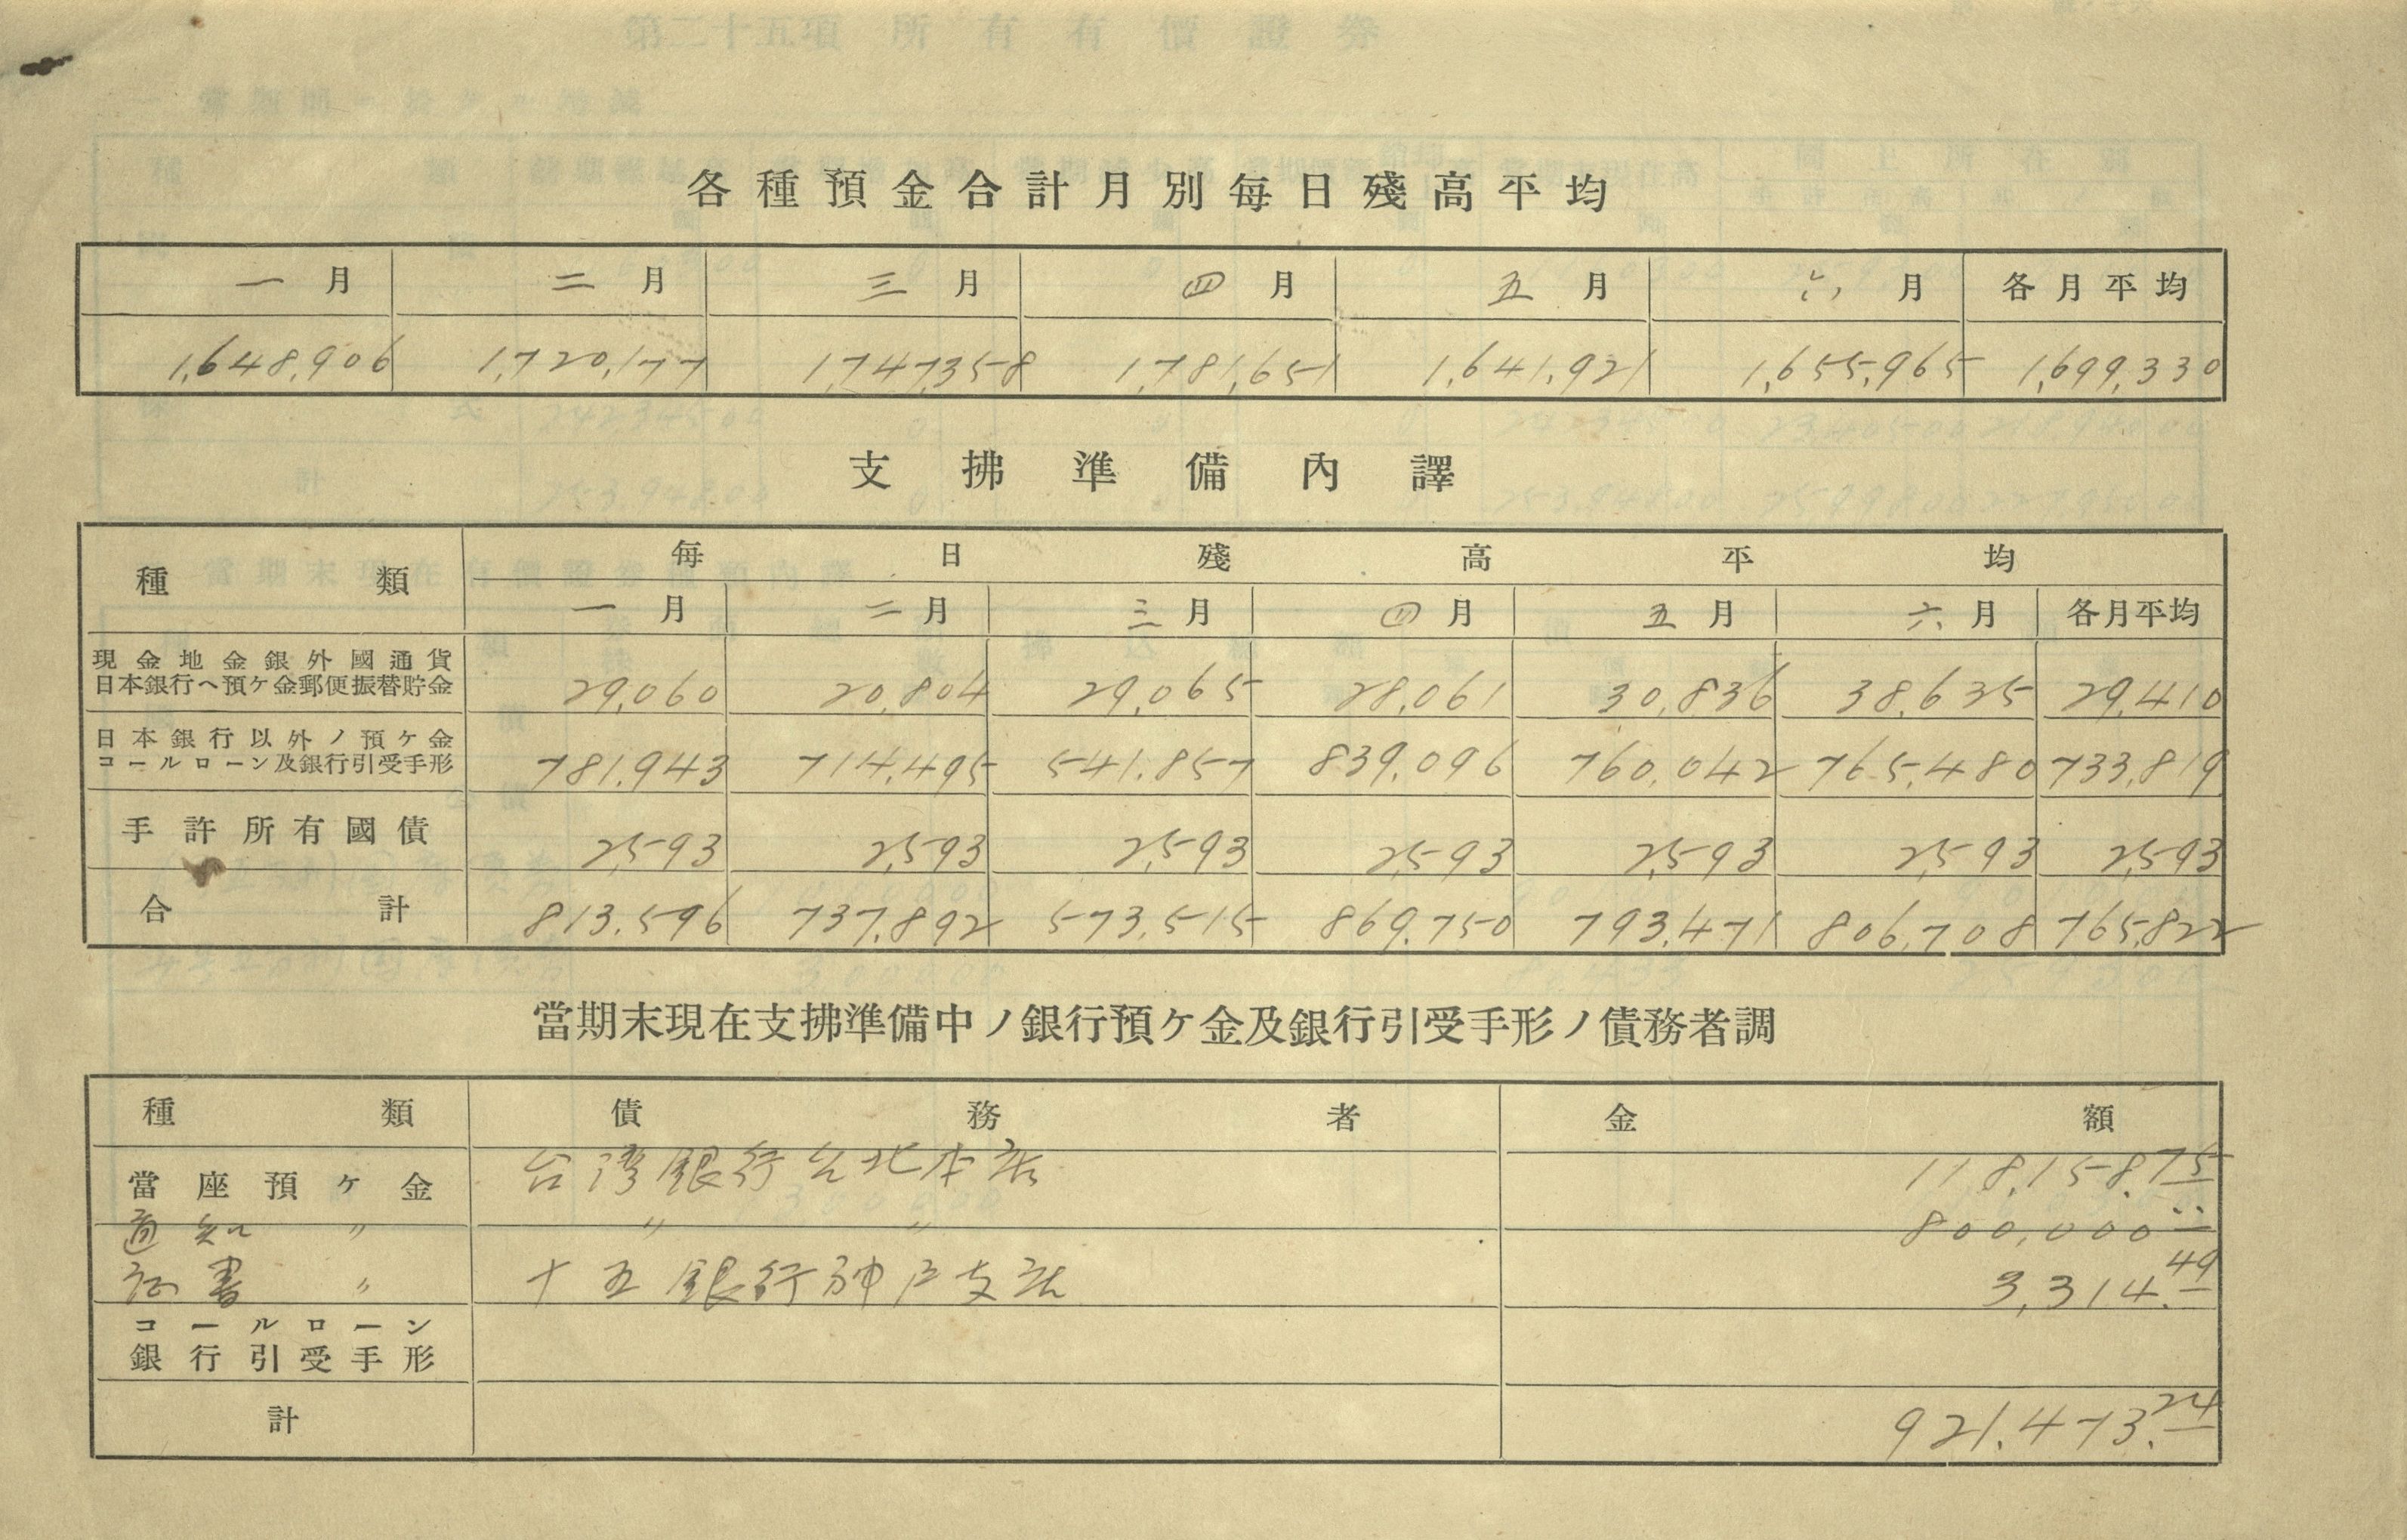 各種預金合計月別每日殘高平均
一月 二月 三月 四月 五月 六月 各月平均
1,648,906 1,720,177 1,747,358 1,781,651 1,641,921 1,655,965 1,699,330
支拂準備內譯
種類 每日殘高平均
一月 二月 三月 四月 五月 六月 各月平均
現金地金銀外國通貨
日本銀行ヘ預ケ金郵便振替貯金 29,060 20,804 29,065 28,061 30,836 38,635 29,410
日本銀行以外ノ預ケ金
コールローン及銀行引受手形 781,943 714,495 541,857 839,096 760,042 765,480 733,819
手許所有國債 2,593 2,593 2,593 2,593 2,593 2,593 2,593
合計 813,596 737,892 573,515 869,750 793,471 806,708 765,822
當期末現在支拂準備中ノ銀行預ケ金及銀行引受手形ノ債務者調
種類 債務者 金額
當座預ケ金 台湾銀行台北本店 118,158.75
通知 〃 〃 〃 800,000
証書 〃 十五銀行神戸支店 3,314.49
コールローン
銀行引受手形
計 921,473.24